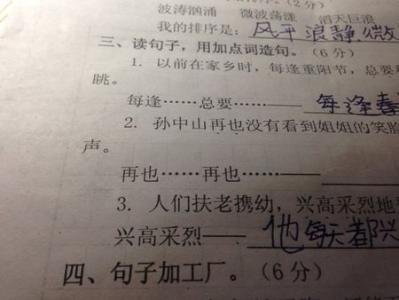 波涛汹涌 微波荡漾 滔天巨浪
我的排序是：风平浪静 微
三、读句子，用加点词造句。（6分）
1. 以前在家乡时，每逢重阳节，总要
眺。
每逢……总要—— 每逢春
2. 孙中山再也没有看到姐姐的笑脸
声。
再也……再也……——
3. 人们扶老携幼，兴高采烈地
兴高采烈—— 他每天都兴
四、句子加工厂。（6分）